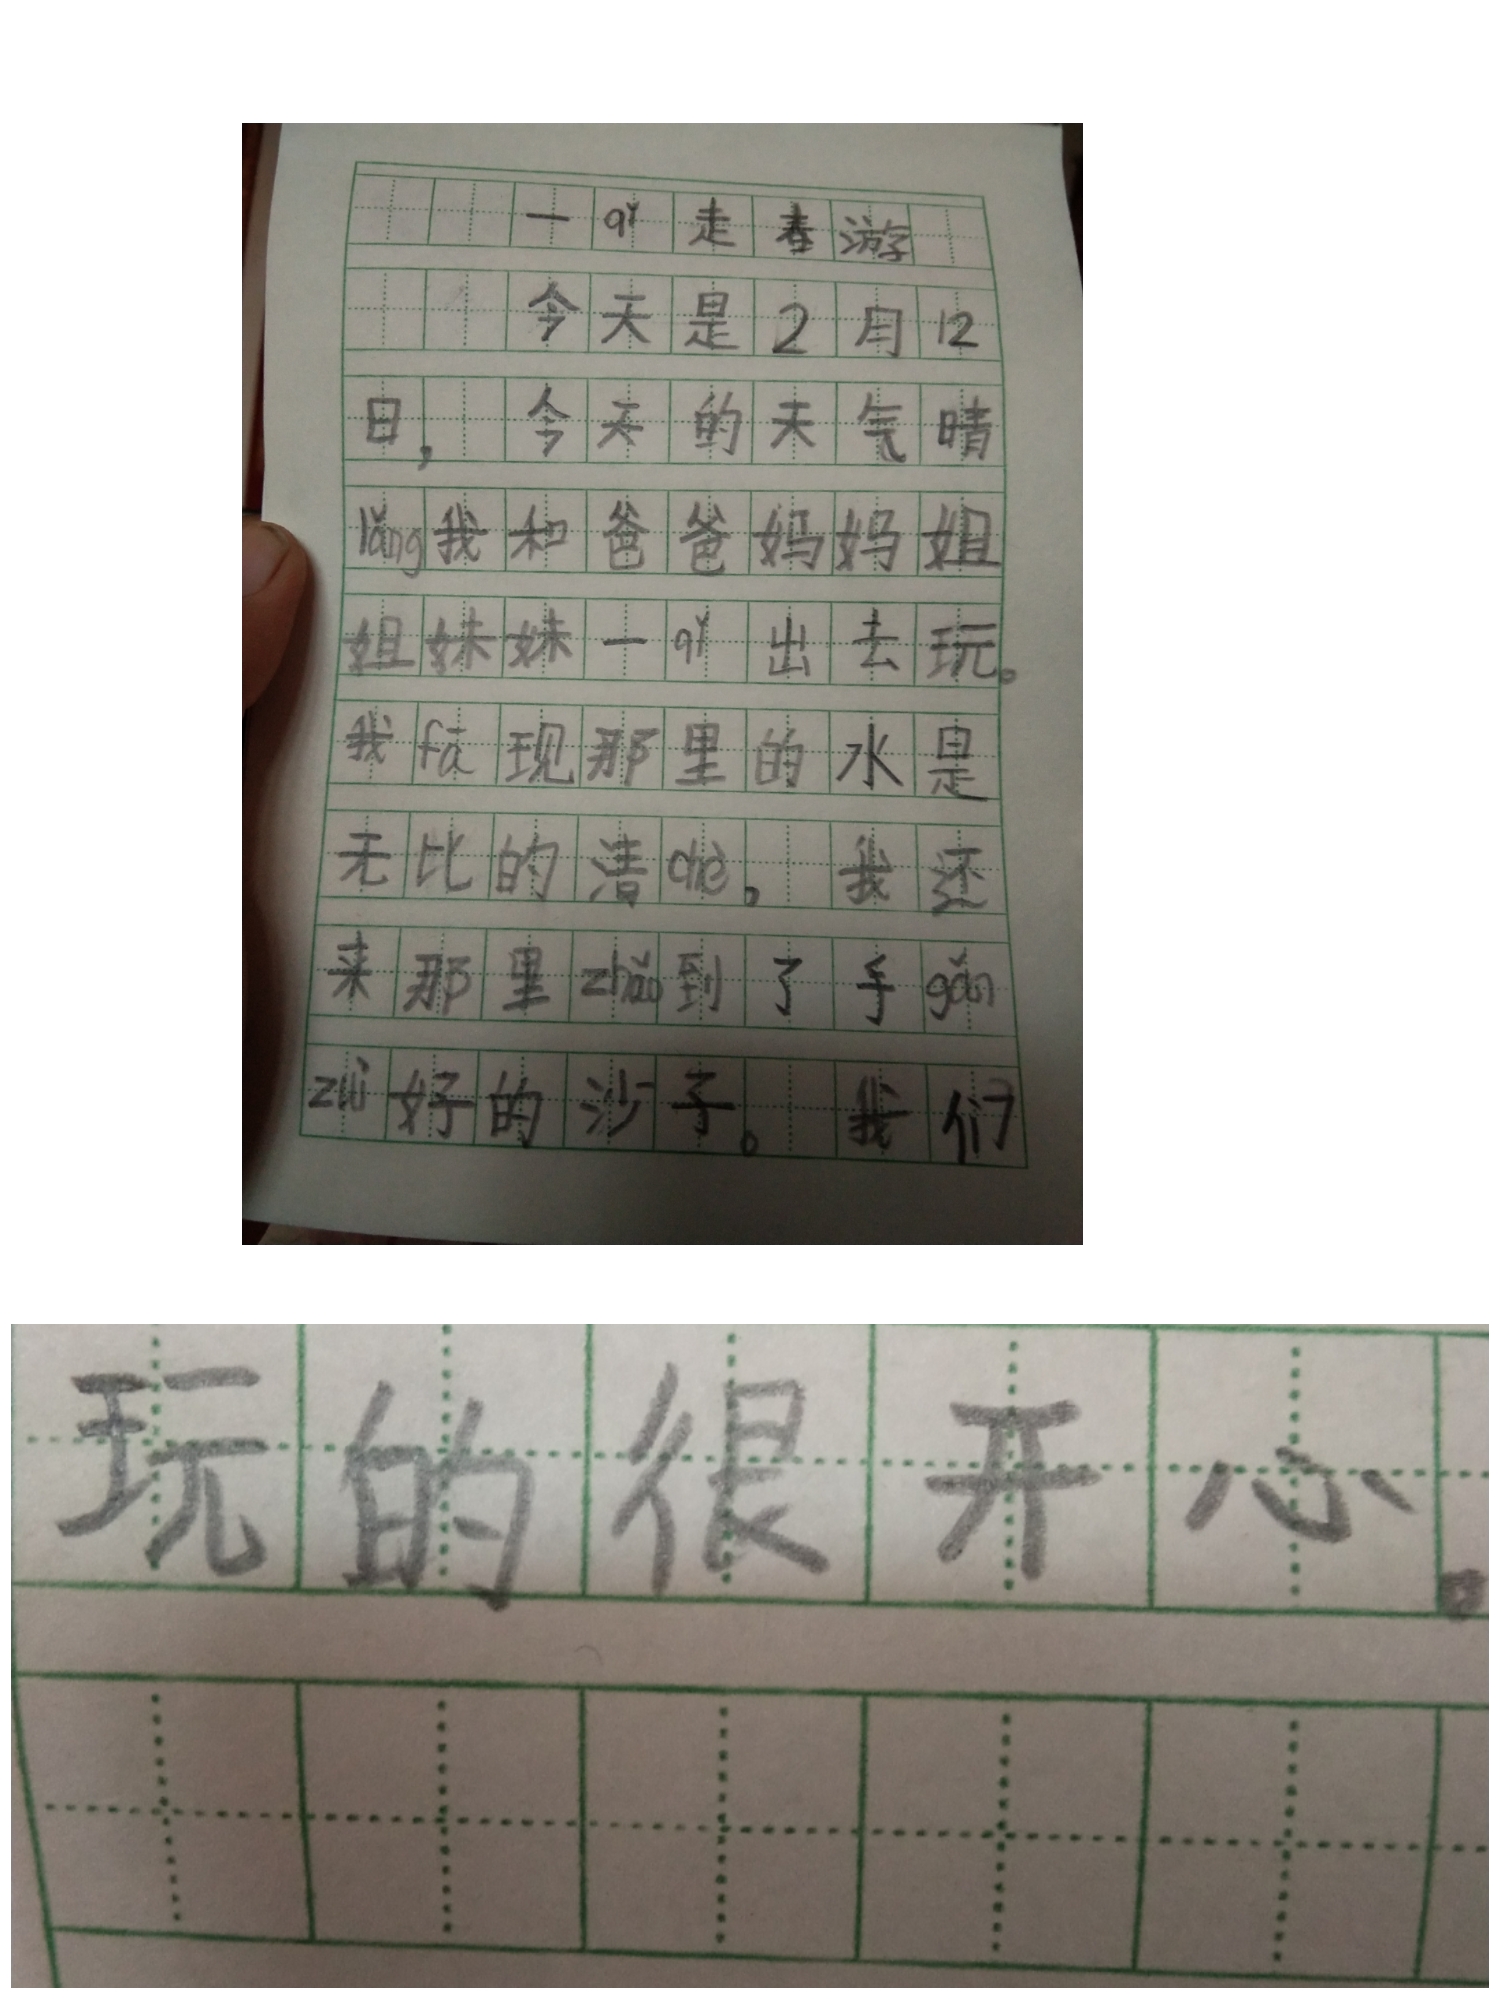 一qǐ走春游
今天是2月12
日，今天的天气晴
lǎng我和爸爸妈妈姐
姐妹妹一qǐ出去玩。
我fā现那里的水是
无比的洁chè。我还
来那里zhǎo到了手gǎn
zuì好的沙子。我们
玩的很开心。